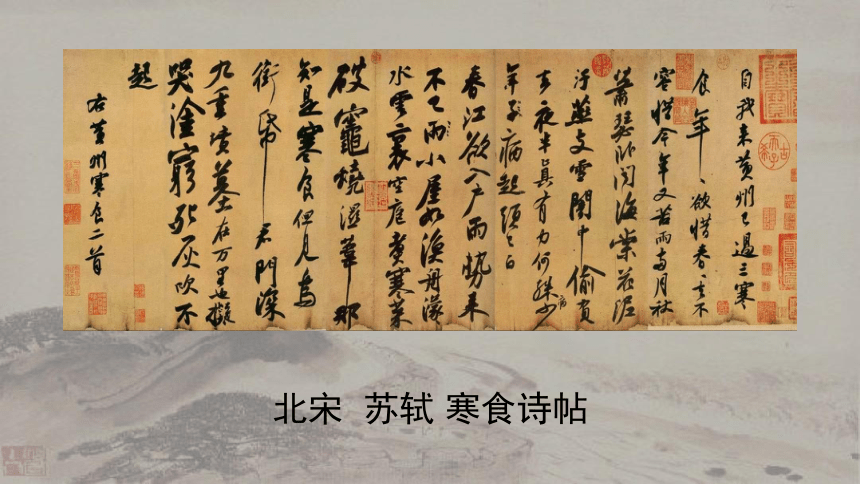 自我来黄州已過三寒
食年、欲惜春、去不
容惜今年又苦雨兩月秋
蕭瑟卧聞海棠花泥
汙燕支雪闇中偷負
去夜半真有力何殊少
病
年子病起頭已白
春江欲入户雨勢来
不已雨小屋如漁舟濛、
水雲裏空庖煮寒菜
破竈燒濕葦那
知是寒食但見烏
銜帋君門深
九重墳墓在万里也擬
哭塗窮死灰吹不
起
右黄州寒食二首
北宋 苏轼 寒食诗帖